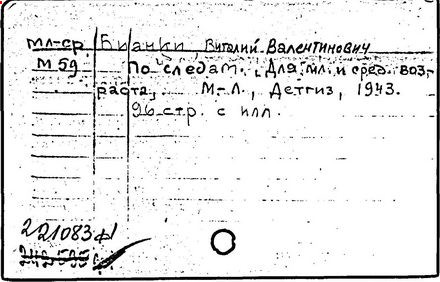 мл-ср Бианки Виталий Валентинович
М 59 По следам. Для мл. и сред. воз-
раста, М-Л., Детгиз, 1943.
96 стр. с илл.
221083
242535